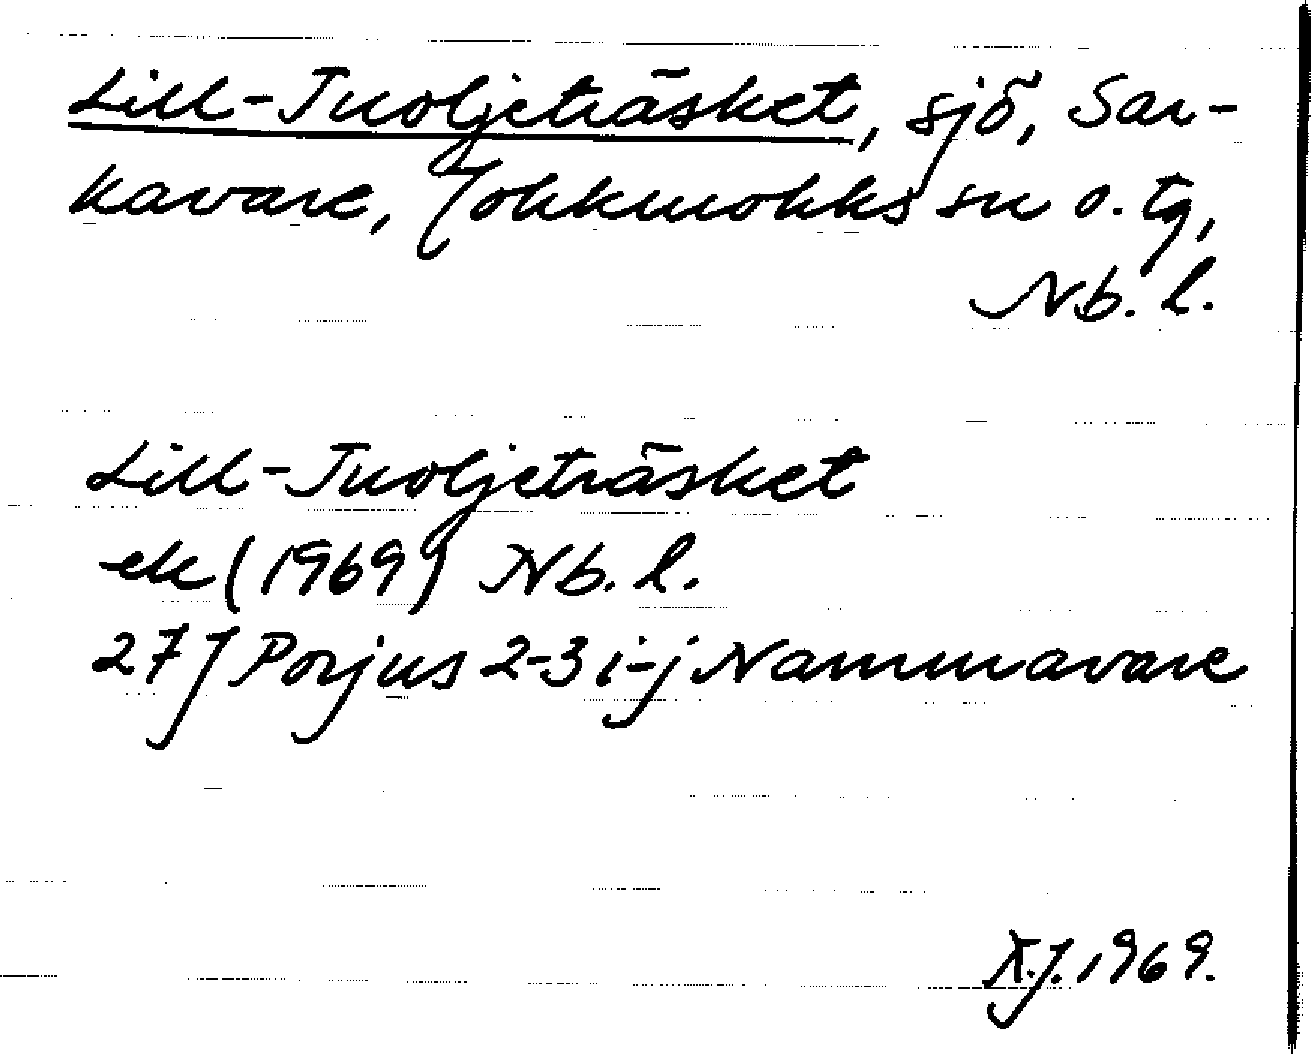 Lill-Tuoljeträsket, sjö, Sar-
kavare, Jokkmokks sn o. tg,
Nb. l.
Lill-Tuoljeträsket
ek (1969) Nb. l.
27 J Porjus 2-3 i-j Nammavare
1969.